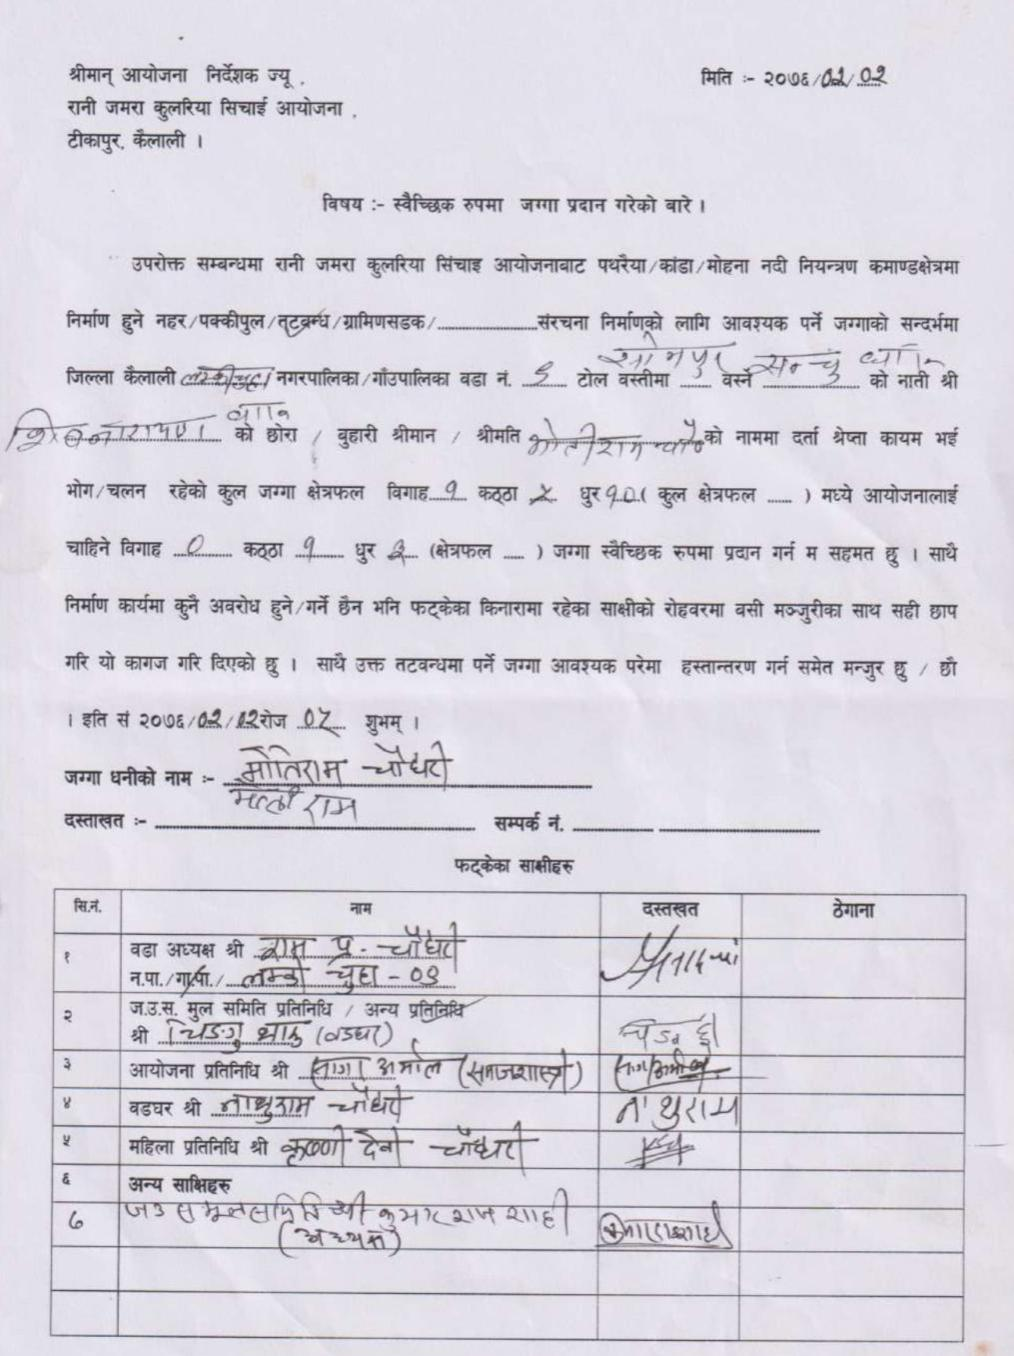 श्रीमान् आयोजना निर्देशक ज्यू .
मिति :- २०७६/०२/०२
रानी जमरा कुलरिया सिचाई आयोजना .
टीकापुर, कैलाली ।
विषय :- स्वैच्छिक रुपमा जग्गा प्रदान गरेको बारे ।
उपरोक्त सम्बन्धमा रानी जमरा कुलरिया सिंचाइ आयोजनाबाट पथरैया/कांडा/मोहना नदी नियन्त्रण कमाण्डक्षेत्रमा
निर्माण हुने नहर/पक्कीपुल/तटबन्ध/ग्रामिणसडक/....................संरचना निर्माणको लागि आवश्यक पर्ने जग्गाको सन्दर्भमा
जिल्ला कैलाली लम्कीचुहा नगरपालिका/गाँउपालिका वडा नं. टोल वस्तीमा वस्ने को नाती श्री
को छोरा / बुहारी श्रीमान / श्रीमति मोतीराम चौ० को नाममा दर्ता श्रेष्ता कायम भई
भोग/चलन रहेको कुल जग्गा क्षेत्रफल विगाह १ कठ्ठा धुर १०( कुल क्षेत्रफल ...... ) मध्ये आयोजनालाई
चाहिने विगाह ० कठ्ठा १ धुर २ (क्षेत्रफल .... ) जग्गा स्वैच्छिक रुपमा प्रदान गर्न म सहमत छु । साथै
निर्माण कार्यमा कुनै अवरोध हुने/गर्ने छैन भनि फट्केका किनारामा रहेका साक्षीको रोहवरमा बसी मञ्जुरीका साथ सही छाप
गरि यो कागज गरि दिएको छु । साथै उक्त तटवन्धमा पर्ने जग्गा आवश्यक परेमा हस्तान्तरण गर्न समेत मन्जुर छु / छौ
। इति सं २०७६/०२/०२रोज शुभम् ।
जग्गा धनीको नाम :- मोतिराम चौधरी
दस्ताखत :- मोती राम सम्पर्क नं. ............ ........................
फट्केका साक्षीहरु
सि.नं. नाम दस्तखत ठेगाना
१ वडा अध्यक्ष श्री राम प्र. चौधरी
न.पा./गा.पा./ लम्की चुहा - ०९
२ ज.उ.स. मुल समिति प्रतिनिधि / अन्य प्रतिनिधि
श्री (वडघर)
३ आयोजना प्रतिनिधि श्री (समाजशास्त्री)
४ वडघर श्री नाथुराम चौधरी नाथुराम
५ महिला प्रतिनिधि श्री कृष्णी देवी चौधरी
६ अन्य साक्षिहरु
७ ज उ स मूल समिति श्री कुमार राज शाही
(अध्यक्ष)